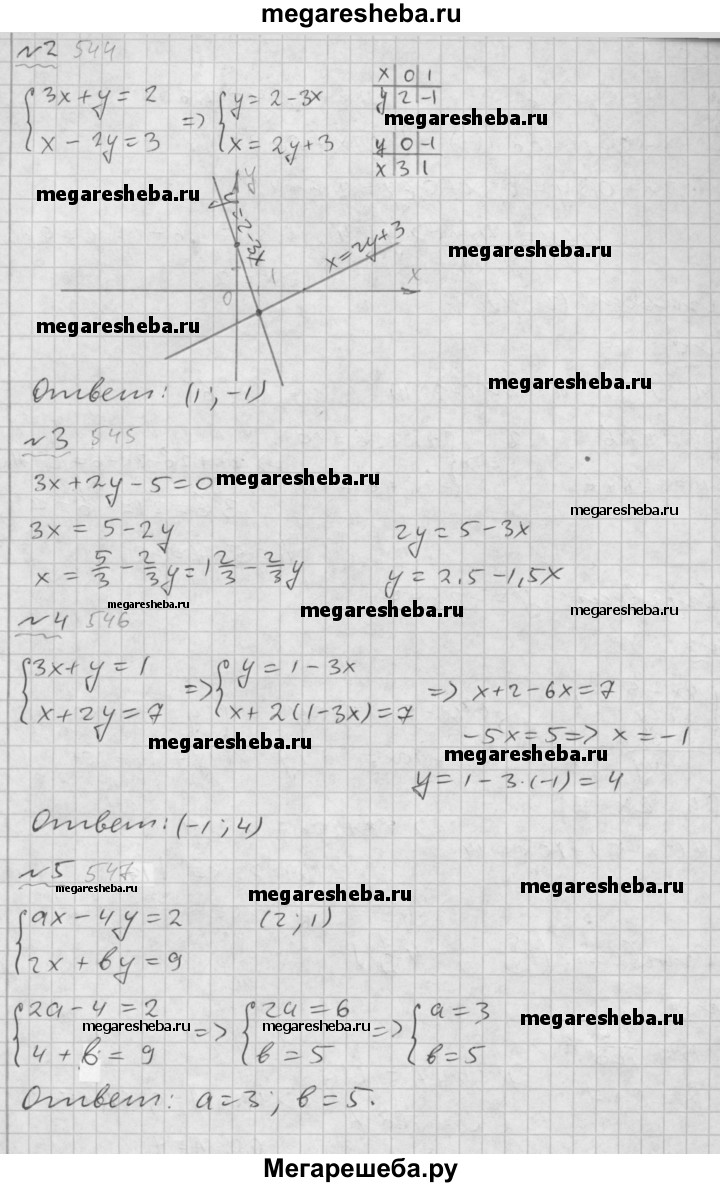 megaresheba.ru
№2 544
{3x + y = 2 => {y = 2 - 3x
x - 2y = 3 x = 2y + 3
x | 0 | 1
y | 2 | -1
megaresheba.ru
y | 0 | -1
x | 3 | 1
megaresheba.ru
y
y = 2 - 3x
x = 2y + 3
megaresheba.ru
0 1 x
megaresheba.ru
megaresheba.ru
Ответ: (1; -1)
№3 545
3x + 2y - 5 = 0
megaresheba.ru
megaresheba.ru
3x = 5 - 2y 2y = 5 - 3x
x = 5/3 - 2/3 y = 1 2/3 - 2/3 y y = 2,5 - 1,5x
megaresheba.ru
megaresheba.ru
megaresheba.ru
№4 546
{3x + y = 1 => {y = 1 - 3x => x + 2 - 6x = 7
x + 2y = 7 x + 2(1 - 3x) = 7
-5x = 5 => x = -1
megaresheba.ru
megaresheba.ru
y = 1 - 3·(-1) = 4
Ответ: (-1; 4)
№5 547
megaresheba.ru
megaresheba.ru
megaresheba.ru
{ax - 4y = 2 (2; 1)
2x + by = 9
{2a - 4 = 2 => {2a = 6 => {a = 3
4 + b = 9 b = 5 b = 5
megaresheba.ru
megaresheba.ru
megaresheba.ru
Ответ: a = 3; b = 5.
Мегарешеба.ру